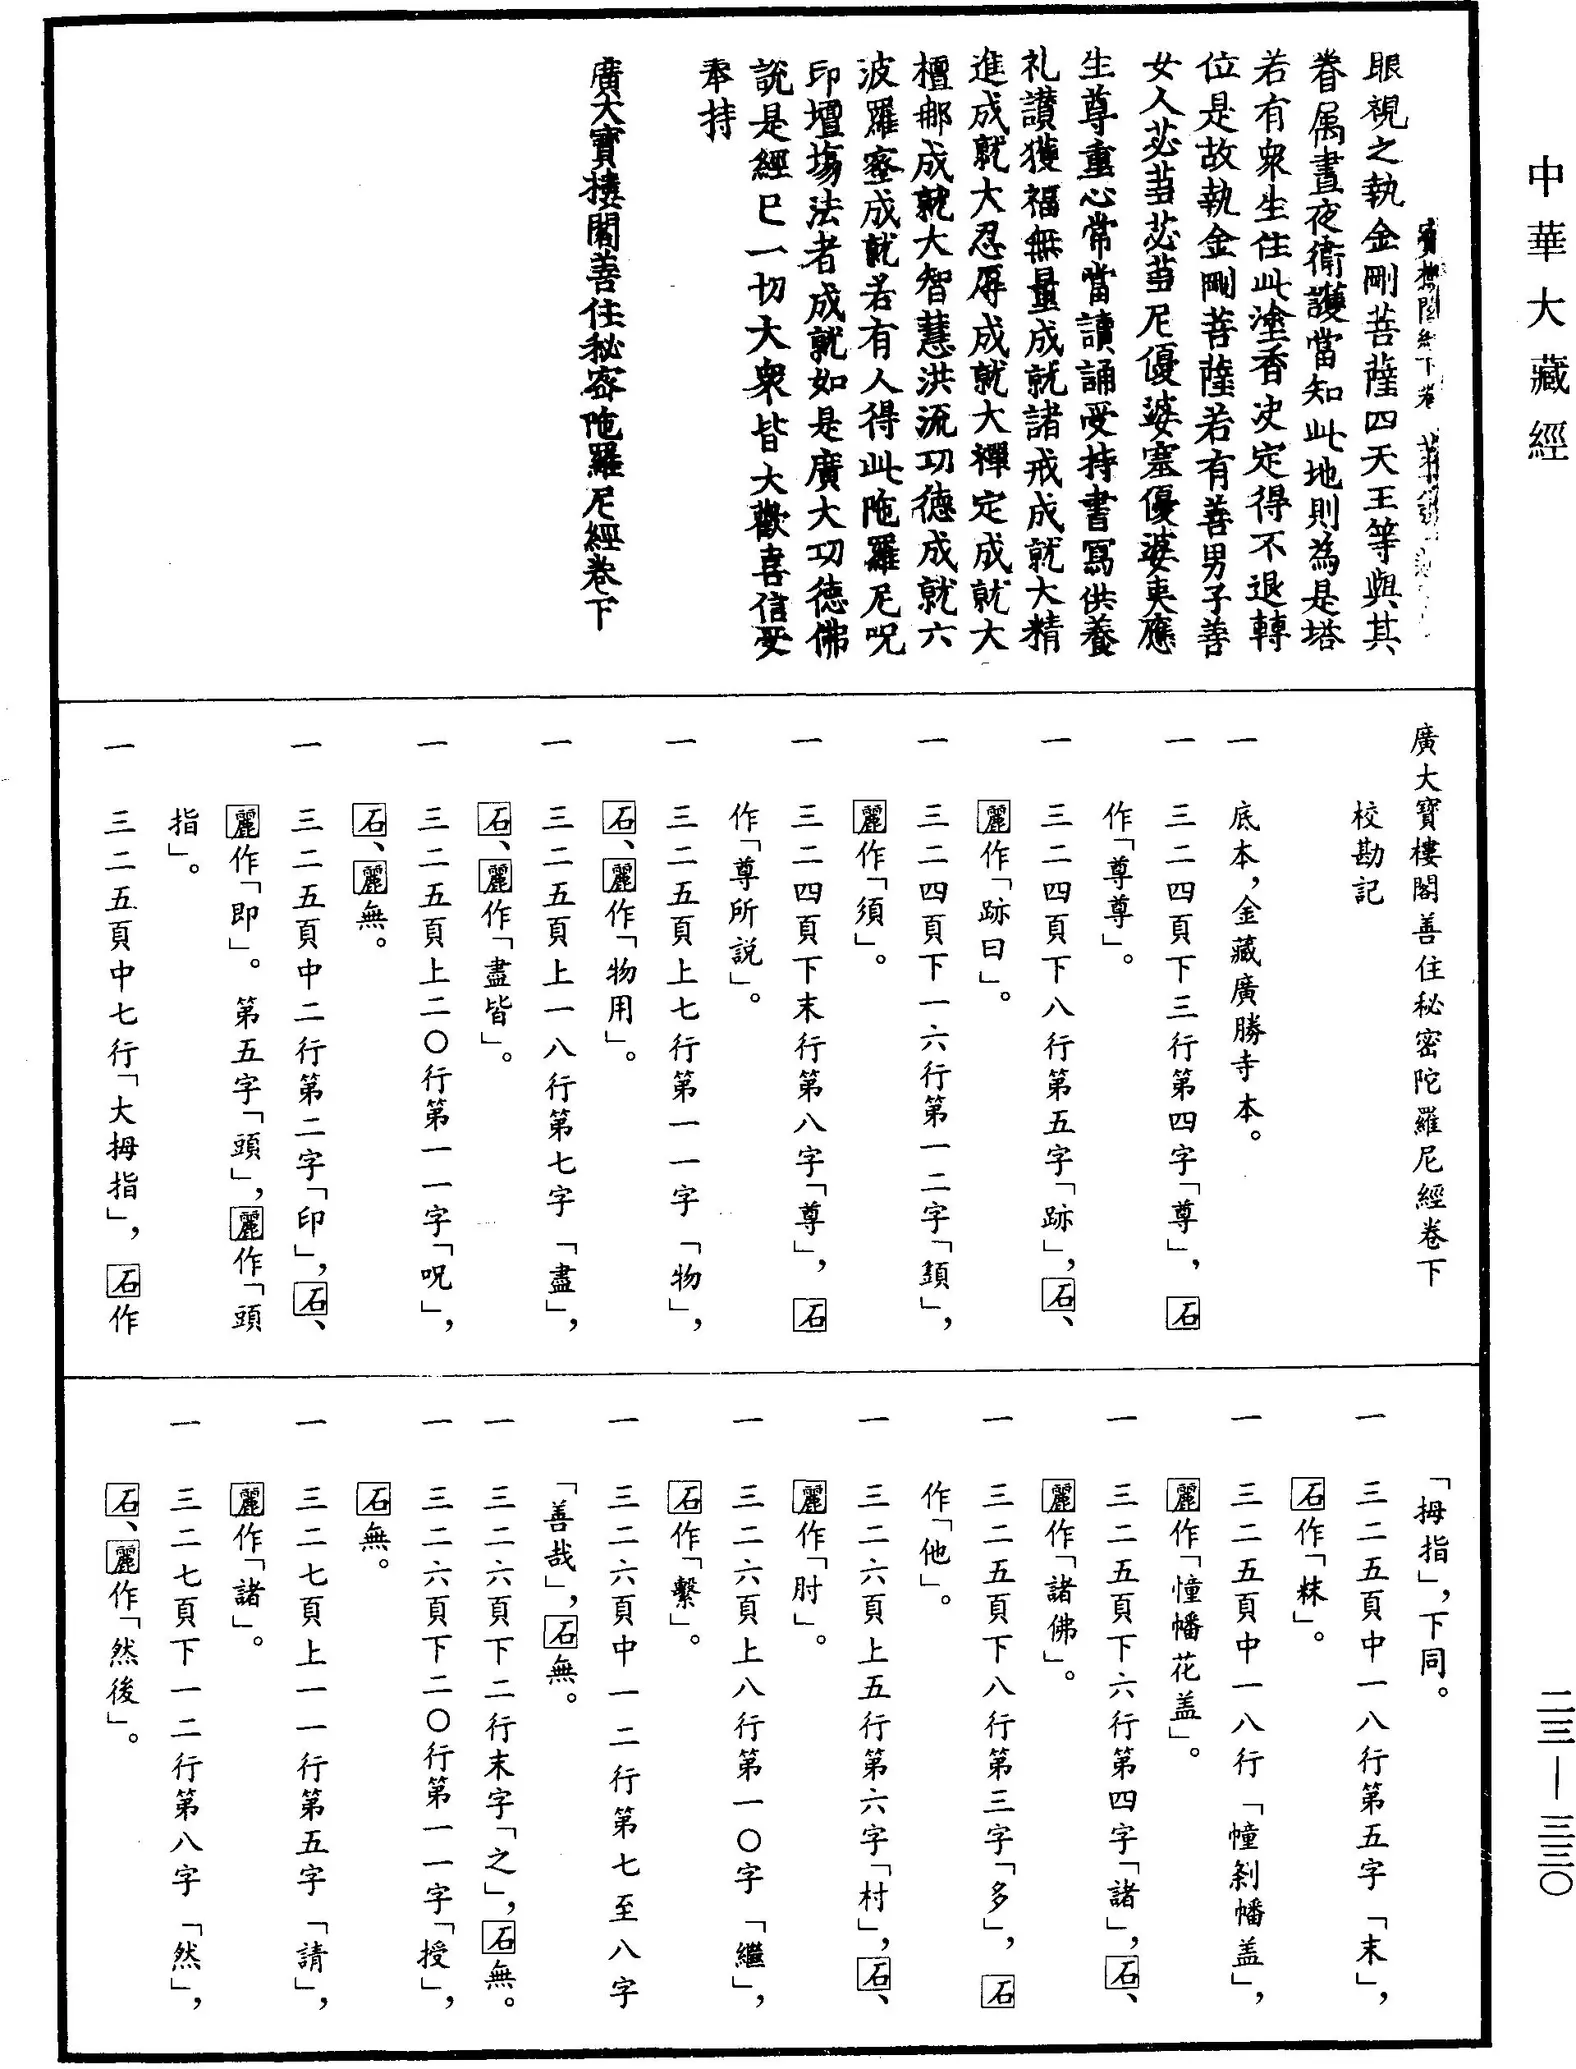 中華大藏經
眼視之執金剛菩薩四天王等與其
眷属晝夜衛護當知此地則為是塔
若有衆生住此塗香決定得不退轉
位是故執金剛菩薩若有善男子善
女人苾芻苾芻尼優婆塞優婆夷應
生尊重心常當讀誦受持書寫供養
礼讃獲福無量成就諸戒成就大精
進成就大忍辱成就大禪定成就大
檀那成就大智慧洪流功德成就六
波羅蜜成就若有人得此陁羅尼呪
印壇塲法者成就如是廣大功德佛
說是經已一切大衆皆大歡喜信受
奉持
廣大寶樓閣善住秘密陁羅尼經卷下
廣大寶樓閣善住秘密陀羅尼經卷下
校勘記
一　底本，金藏廣勝寺本。
一　三二四頁下三行第四字「尊」，石
作「尊尊」。
一　三二四頁下八行第五字「跡」，石、
麗作「跡曰」。
一　三二四頁下一六行第一二字「頦」，
麗作「須」。
一　三二四頁下末行第八字「尊」，石
作「尊所説」。
一　三二五頁上七行第一一字「物」，
石、麗作「物用」。
一　三二五頁上一八行第七字「盡」，
石、麗作「盡皆」。
一　三二五頁上二〇行第一一字「呪」，
石、麗無。
一　三二五頁中二行第二字「印」，石、
麗作「即」。第五字「頭」，麗作「頭
指」。
一　三二五頁中七行「大拇指」，石作
「拇指」，下同。
一　三二五頁中一八行第五字「末」，
石作「粖」。
一　三二五頁中一八行「幢刹幡盖」，
麗作「幢幡花盖」。
一　三二五頁下六行第四字「諸」，石、
麗作「諸佛」。
一　三二五頁下八行第三字「多」，石
作「他」。
一　三二六頁上五行第六字「村」，石、
麗作「肘」。
一　三二六頁上八行第一〇字「繼」，
石作「繫」。
一　三二六頁中一二行第七至八字
「善哉」，石無。
一　三二六頁下二行末字「之」，石無。
一　三二六頁下二〇行第一一字「授」，
石無。
一　三二七頁上一一行第五字「請」，
麗作「諸」。
一　三二七頁下一二行第八字「然」，
石、麗作「然後」。
二三—三三〇